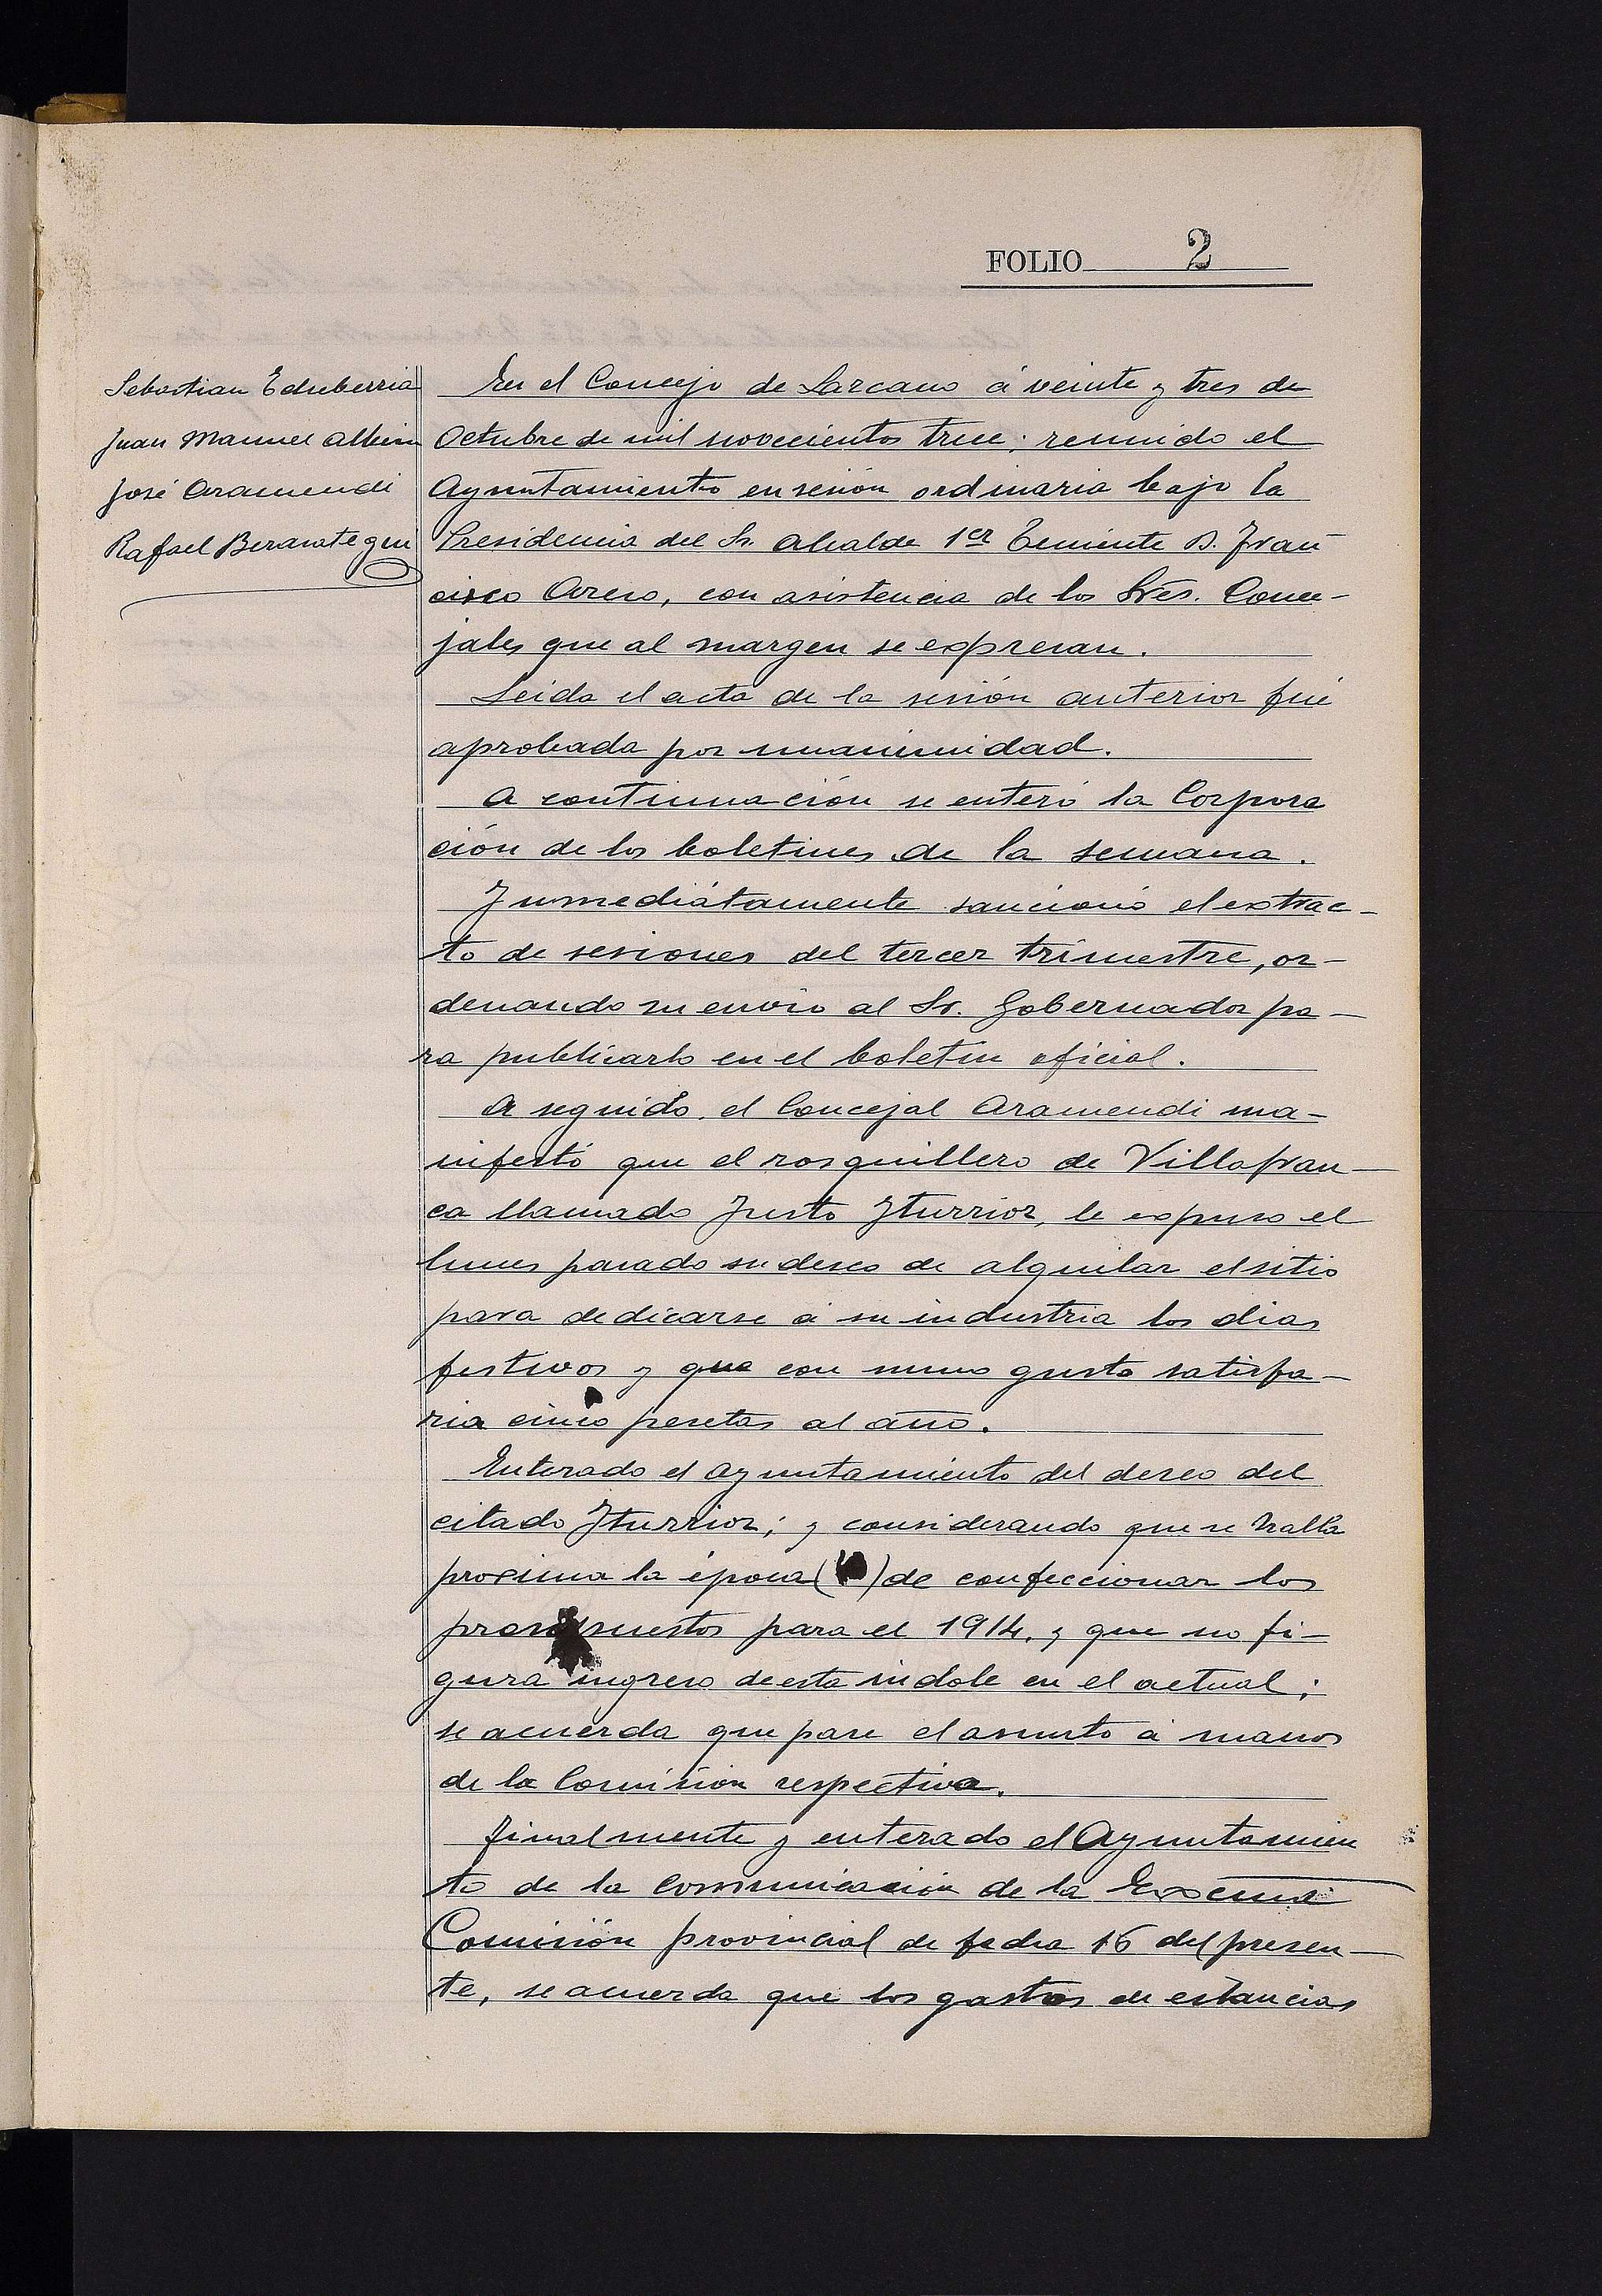 FOLIO 2
Sebastian Echeberria
Juan Manuel Albisu
José Aramendi
Rafael Berasategui
En el Concejo de Lazcano á veinte y tres de
Octubre de mil novecientos trece: reunido el
Ayuntamiento en sesión ordinaria bajo la
Presidencia del Sr. Alcalde 1er Teniente D. Fran
cisco Areso, con asistencia de los Sres. Conce-
jales que al margen se expresan.
Leida el acta de la sesión anterior fué
aprobada por unanimidad.
A continuación se enteró la Corpora
ción de los boletines de la semana.
Inmediátamente sancionó el extrac-
to de sesiones del tercer trimestre, or-
denando su envio al Sr. Gobernador pa-
ra publicarlo en el boletin oficial.
A seguido, el Concejal Aramendi ma-
nifestó que el rosquillero de Villafran-
ca llamado Justo Iturrioz, le expuso el
lunes pasado su deseo de alquilar el sitio
para dedicarse á su industria los dias
festivos y que con sumo gusto satisfa-
ria cinco pesetas al año.
Enterado el Ayuntamiento del deseo del
citado Iturrioz; y considerando que se halla
proxima la época ( ) de confeccionar los
presupuestos para el 1914, y que no fi-
gura ingreso de esta indole en el actual;
se acuerda que pase el asunto á manos
de la Comisión respectiva.
Finalmente y enterado el Ayuntamien
to de la comunicación de la Excma
Comisión provincial de fecha 16 del presen-
te, se acuerda que los gastos de estancias